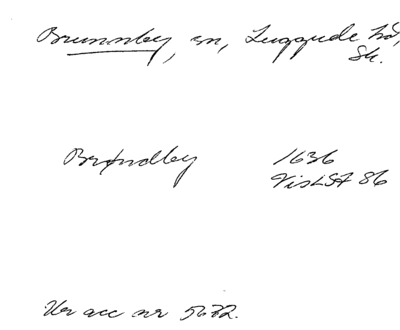 Brunnby, sn, Luggude hd,
Sk.
Brøndby 1636
VisLSt 86
Ur acc nr 5672.